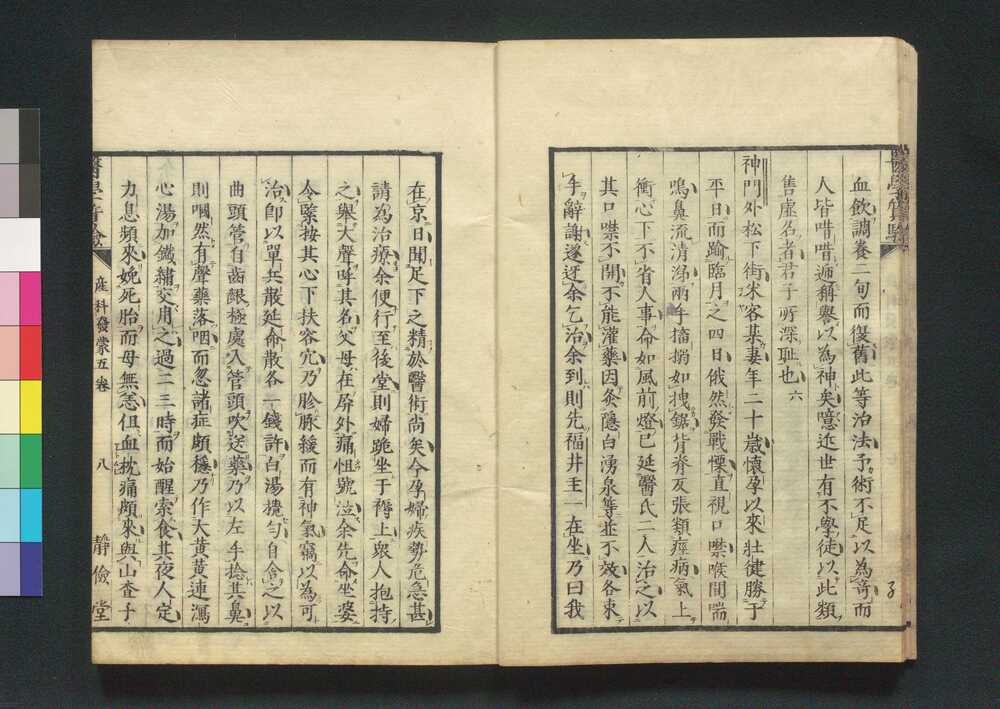 血飲調養二旬而復舊此等治法予術不足以為奇而
人皆唶唶遍稱譽以為神矣噫近世有不學徒以此類
售虛名者君子所深耻也
六
神門外松下街米客某妻年二十歲懷孕以來壮健勝于
平日而踰臨月之四日俄然發戰慄直視口噤喉間喘
鳴鼻流清涕兩手搐搦如拽鋸背脊反張類痙病氣上
衝心下不省人事命如風前燈已延醫氏二人治之以
其口噤不開不能灌藥因灸隱白湧泉等並不效各束
手辭謝遂迓余乞治余到則先福井主一在坐乃曰我
在京日聞足下之精於醫術尚矣今孕婦疾勢危急甚
請為治療余便行至後堂則婦跪坐于褥上衆人抱持
之舉大聲呼其名父母在屏外痛怛號泣余先命坐婆
令緊按其心下扶容穴乃胗脉緩而有神氣竊以為可
治即以單兵散延命散各一錢許白湯攪勻自含之以
曲頭管自齒齦極處入管頭吹送藥乃以左手捻其鼻
則嘓然有聲藥落咽而忽諸症頗穩乃作大黃黃連瀉
心湯加鐵繡交用之過二三時而始醒索食其夜人定
力息頻來娩死胎而母無恙但血枕痛頗來與山查子
産科發蒙五卷
八
靜儉堂